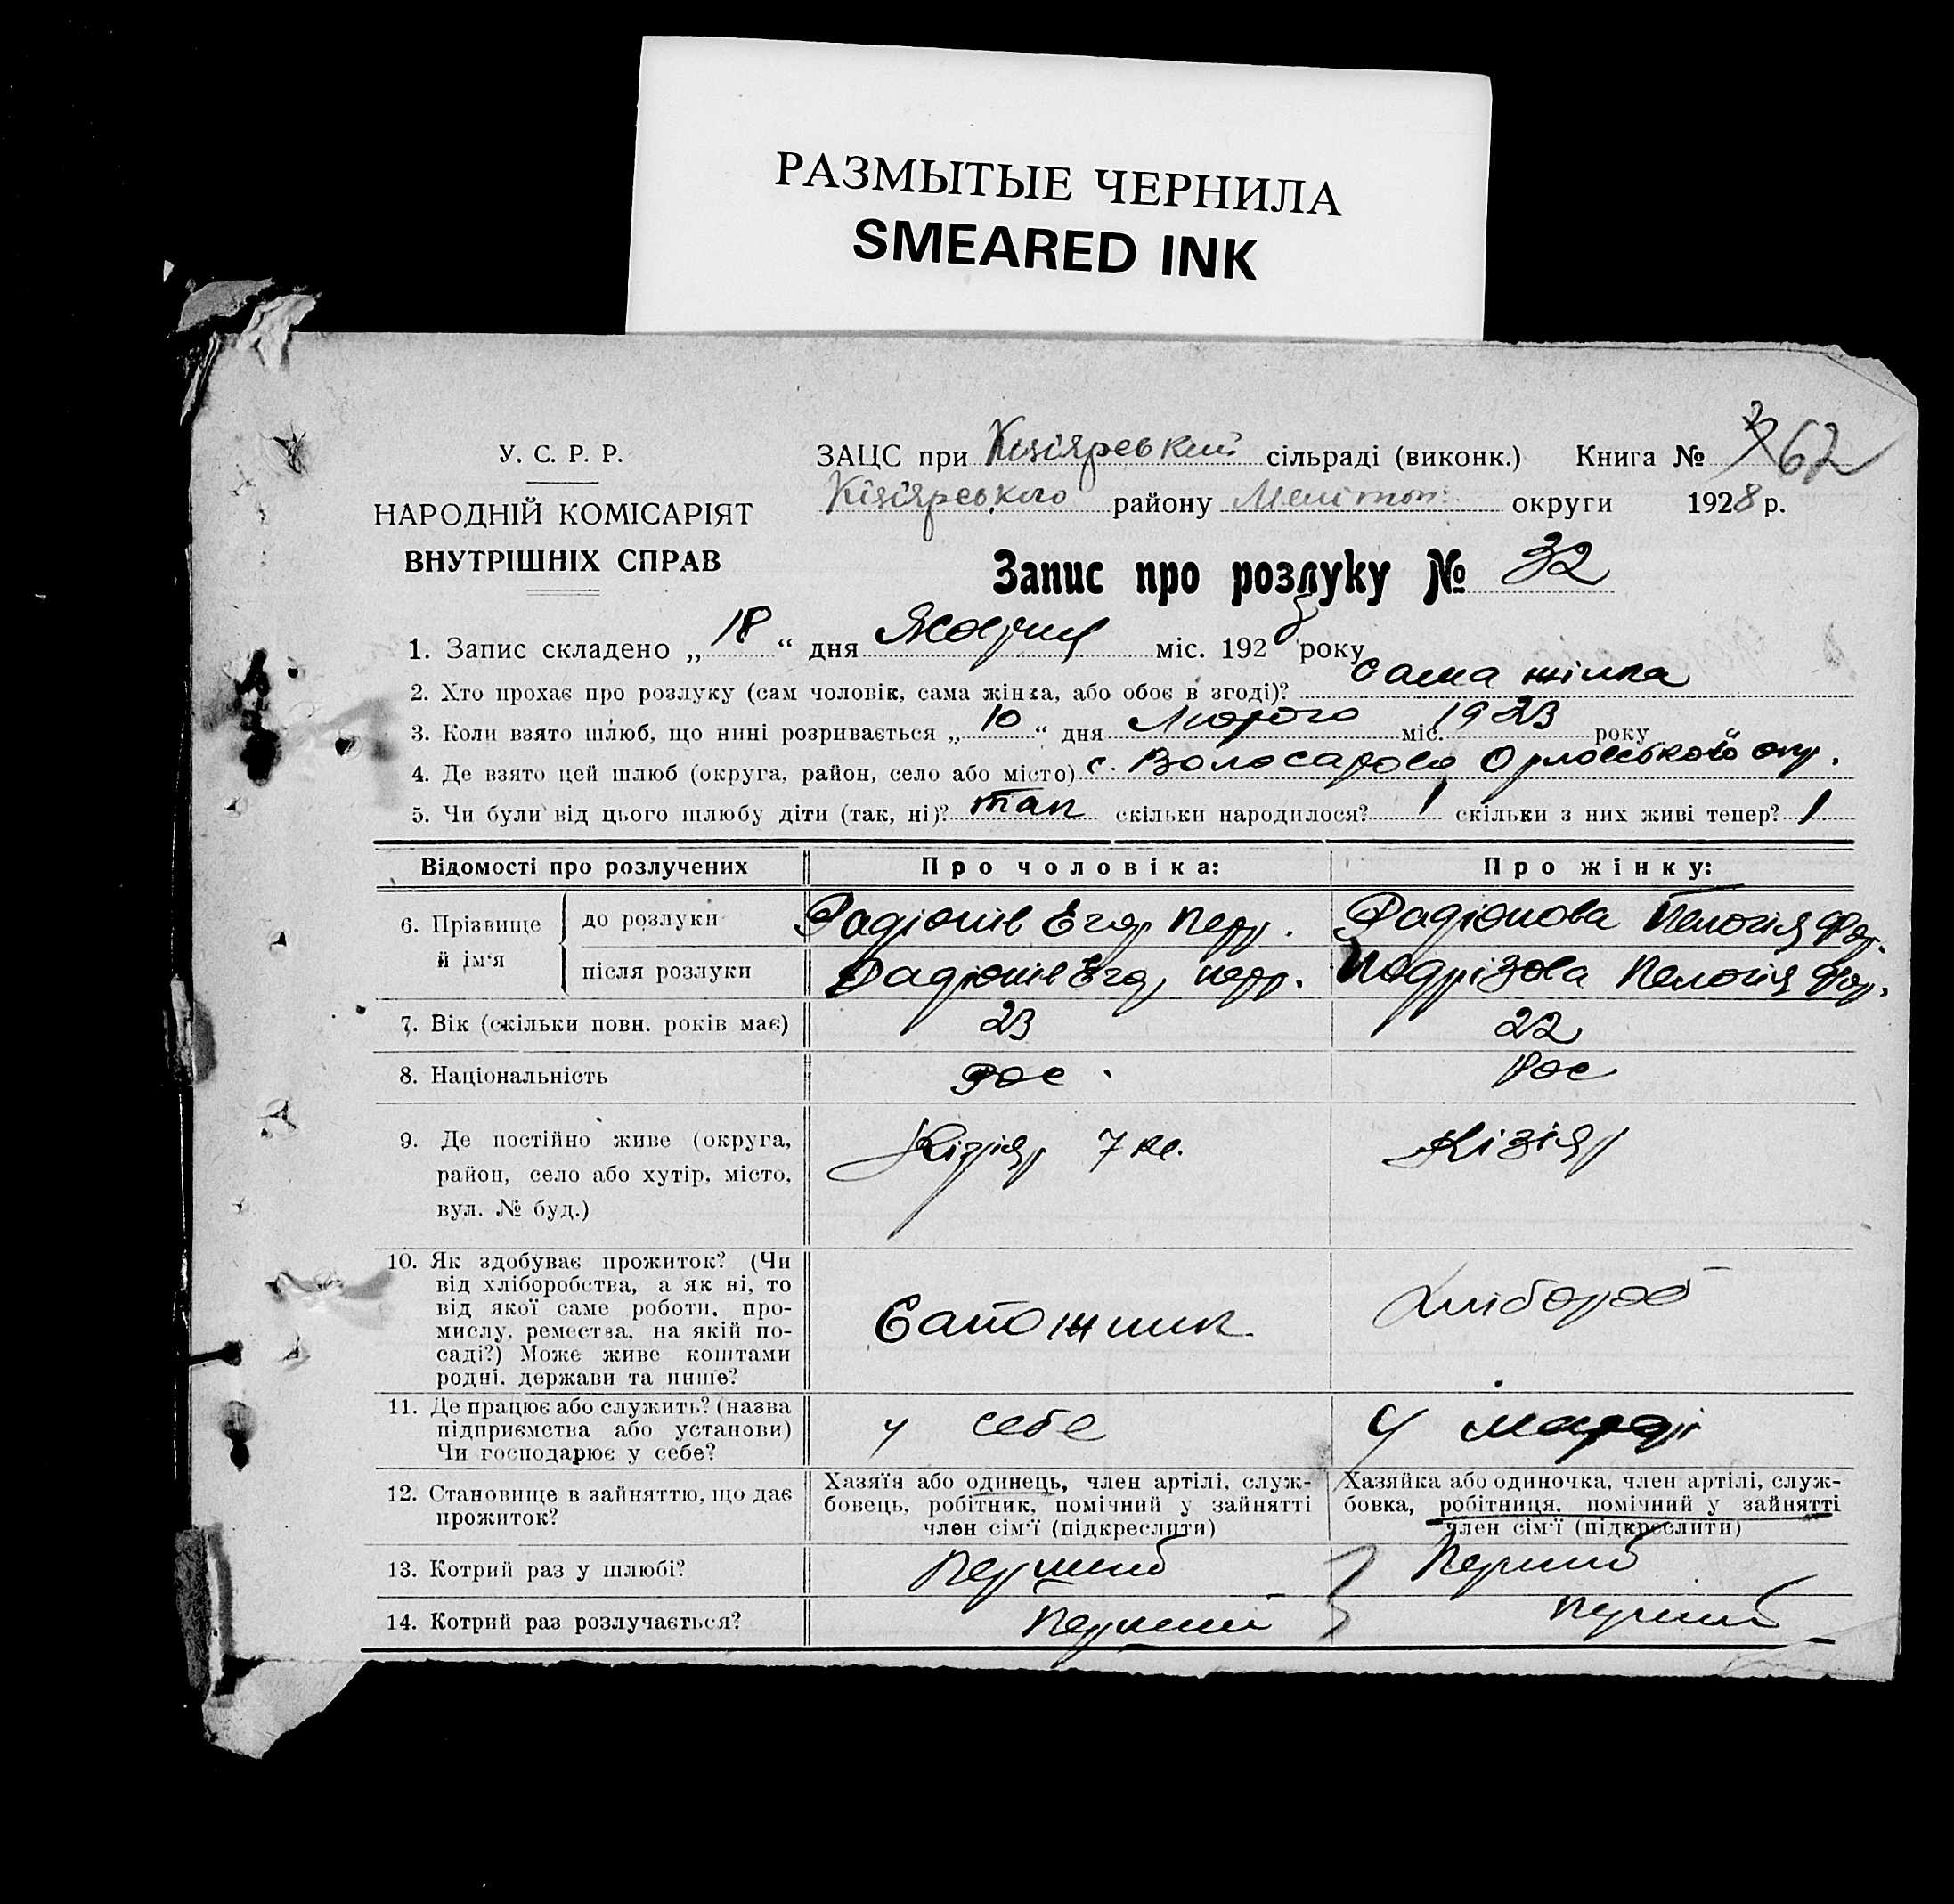 РАЗМЫТЫЕ ЧЕРНИЛА
SMEARED INK
У. С. Р. Р.
НАРОДНІЙ КОМІСАРІЯТ
ВНУТРІШНІХ СПРАВ
ЗАЦС при Кізіярській сільраді (виконк.) Книга № 62
Кізіярського району Мелітоп. округи 1928 р.
Запис про розлуку № 32
1. Запис складено „ 18 “ дня міс. 1928 року
2. Хто прохає про розлуку (сам чоловік, сама жінка, або обоє в згоді)? сама жінка
3. Коли взято шлюб, що нині розривається „ 10 “ дня Лютого міс. 1923 року
4. Де взято цей шлюб (округа, район, село або місто) с. Орловської окр.
5. Чи були від цього шлюбу діти (так, ні)? так скільки народилося? 1 скільки з них живі тепер? 1
Відомості про розлучених Про чоловіка: Про жінку:
6. Прізвище й ім'я
до розлуки Радіонів Егор Радіонова Пелогія Фор.
після розлуки Радіонів Егор Подрізова Пелогія Фор.
7. Вік (скільки повн. років має) 23 22
8. Національність Рос. Рос
9. Де постійно живе (округа,
район, село або хутір, місто,
вул. № буд.)
Кізіяр 7 Кізіяр
10. Як здобуває прожиток? (Чи
від хліборобства, а як ні, то
від якої саме роботи, про-
мислу, ремества, на якій по-
саді?) Може живе коштами
родні, держави та инше?
Сапожник Хлібороб
11. Де працює або служить? (назва
підприємства або установи)
Чи господарює у себе?
у себе у
12. Становище в зайняттю, що дає
прожиток?
Хазяїн або одинець, член артілі, служ-
бовець, робітник, помічний у зайнятті
член сім'ї (підкреслити)
Хазяйка або одиночка, член артілі, служ-
бовка, робітниця, помічний у зайнятті
член сім'ї (підкреслити)
13. Котрий раз у шлюбі? Перший Перший
14. Котрий раз розлучається? Перший Перший